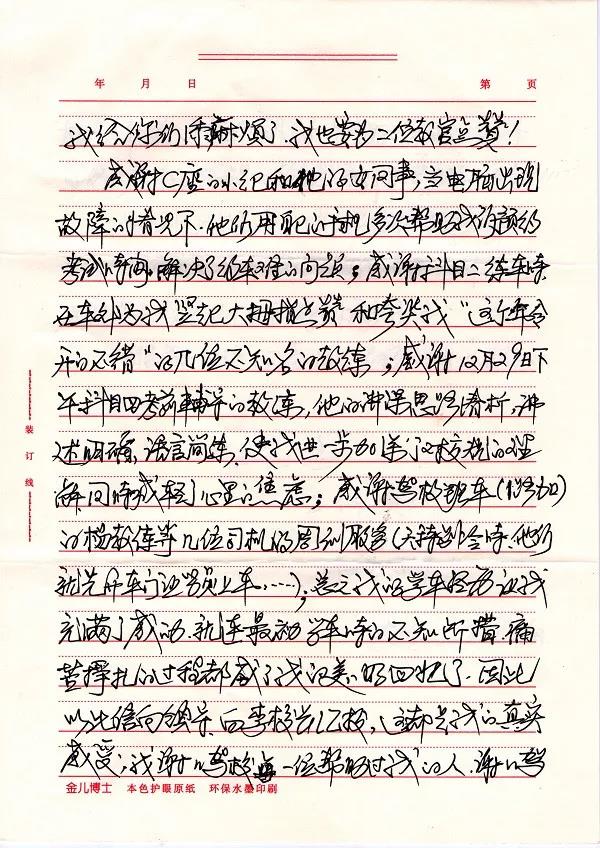 年 月 日 第 页
我给你们添麻烦了,我也要为二位教官点赞!
感谢C座的小纪和他的女同事,当电脑出现
故障的情况下,他们用自己的手机多次帮助我预约
考试时间,解决了约车难的问题;感谢科目二练车时
在车外为我竖起大拇指点赞和夸奖我“这个年龄
开的不错”的几位不知名的教练;感谢12月29日下
午科目四考前辅导的教练,他的讲课思路清析,讲
述明确,语言简练,使我进一步加深了对核规的理
解,同时减轻了心里的焦虑;感谢驾校班车
的杨教练等几位司机的周到服务(天特别冷时,他们
就先开车门让学员上车……);总之我的学车经历让我
充满了感动,就连最初学车时的不知所措,痛
苦挣扎的过程都成了我的美好回忆了。因此
以此信向领导,向李校长汇报,这都是我的真实
感受;我谢谢驾校每一位帮助过我的人,谢谢驾
装订线
金儿博士 本色护眼原纸 环保水墨印刷